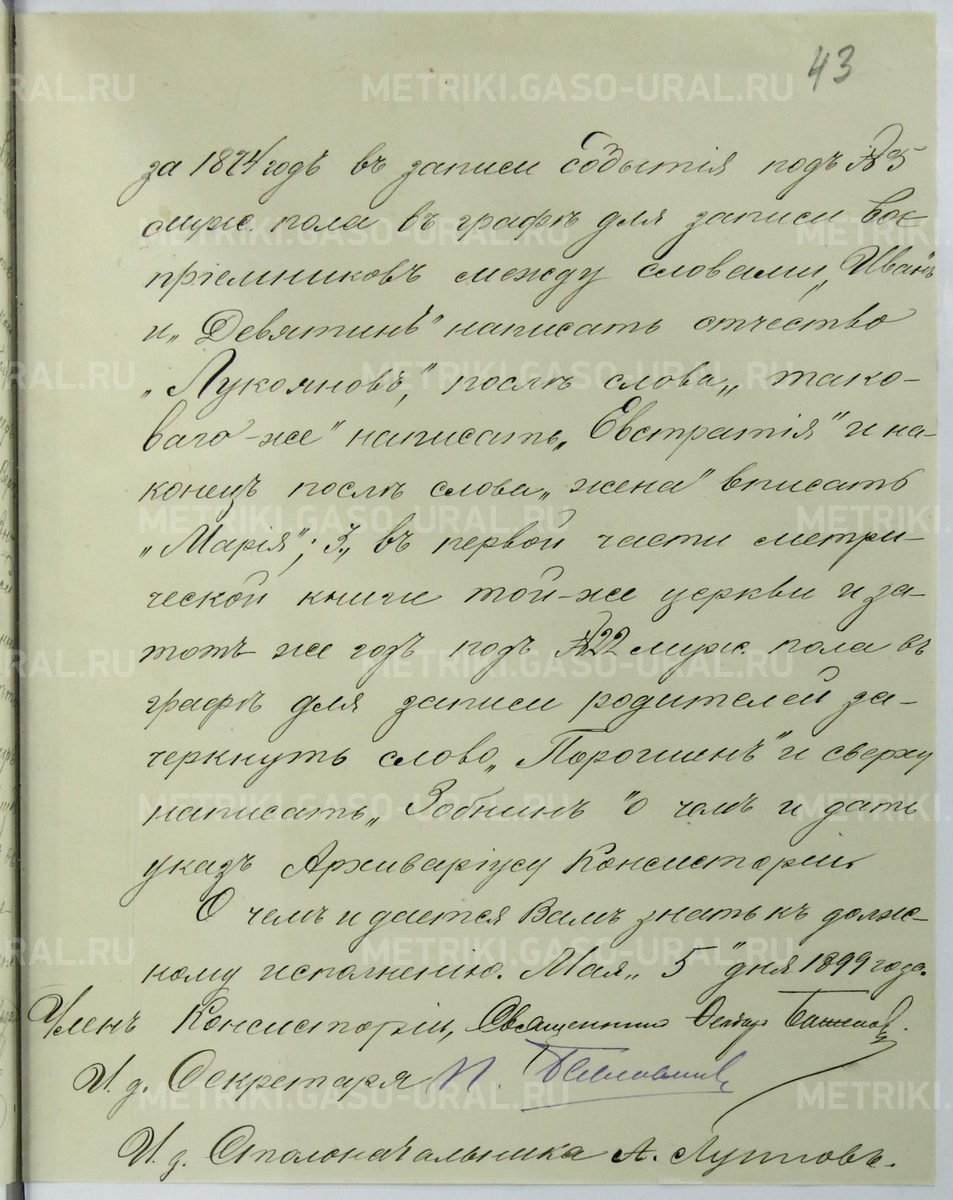 43
за 1874 годъ въ записи событія подъ №35
муж. пола въ графѣ для записи вос-
пріемниковъ между словами „Иванъ"
и „Девятинъ" написать отчество
„Лукояновъ", послѣ слова „тако-
ваго-же" написать „Евстратія" и на-
конецъ послѣ слова „жена" вписать
„Марія"; 3, въ первой части метри-
ческой книги той-же церкви и за
тотъ же годъ подъ №22 муж. пола въ
графѣ для записи родителей за-
черкнуть слово „Порошинъ" и сверху
написать „Зобнинъ" о чемъ и дать
указъ Архиваріусу Консисторіи.
О чемъ и дается Вамъ знать къ долж-
ному исполненію. Мая „5" дня 1899 года.
Членъ Консисторіи, Священникъ
И. д. Секретаря П.
И. д. Столоначальника А. Луппов.
METRIKI.GASO-URAL.RU